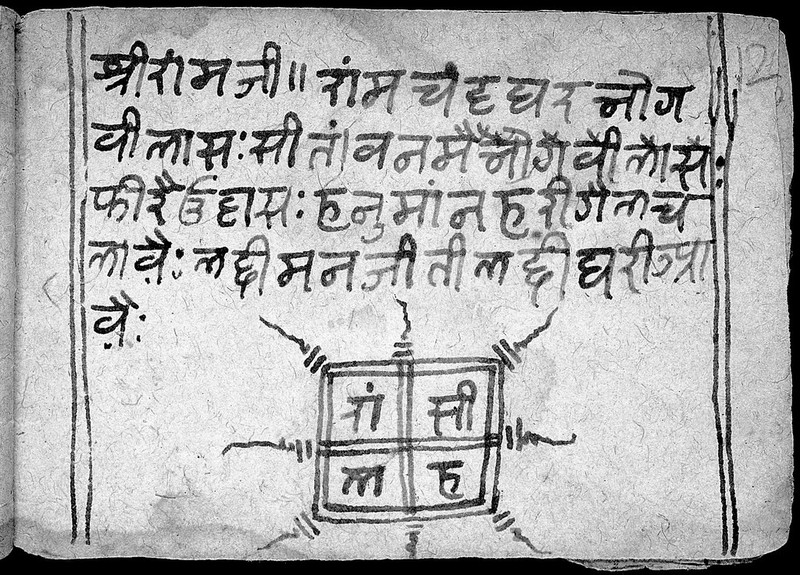 श्रीरांमजी॥ रांमचंद्र घर नोग
वीलास: सीतां वनमै नोगै वौलासै:
फीरै उदास: हनुमांन हरी गैल च
लावै: लछीमनजी तीलछी घरी आ
वै:
रां सी
ल ह
12